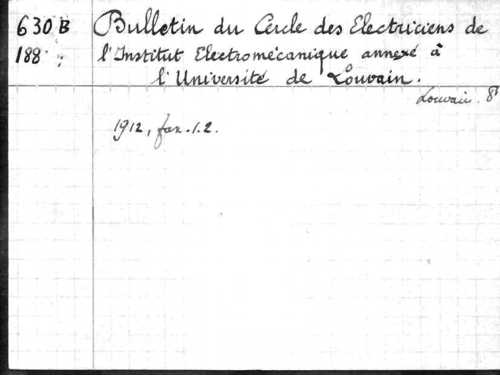 630 B Bulletin du Cercle des Electriciens de
188 l'Institut Electromécanique annexé à
l'Université de Louvain.
Louvain. 8°
1912, fax. 1.2.